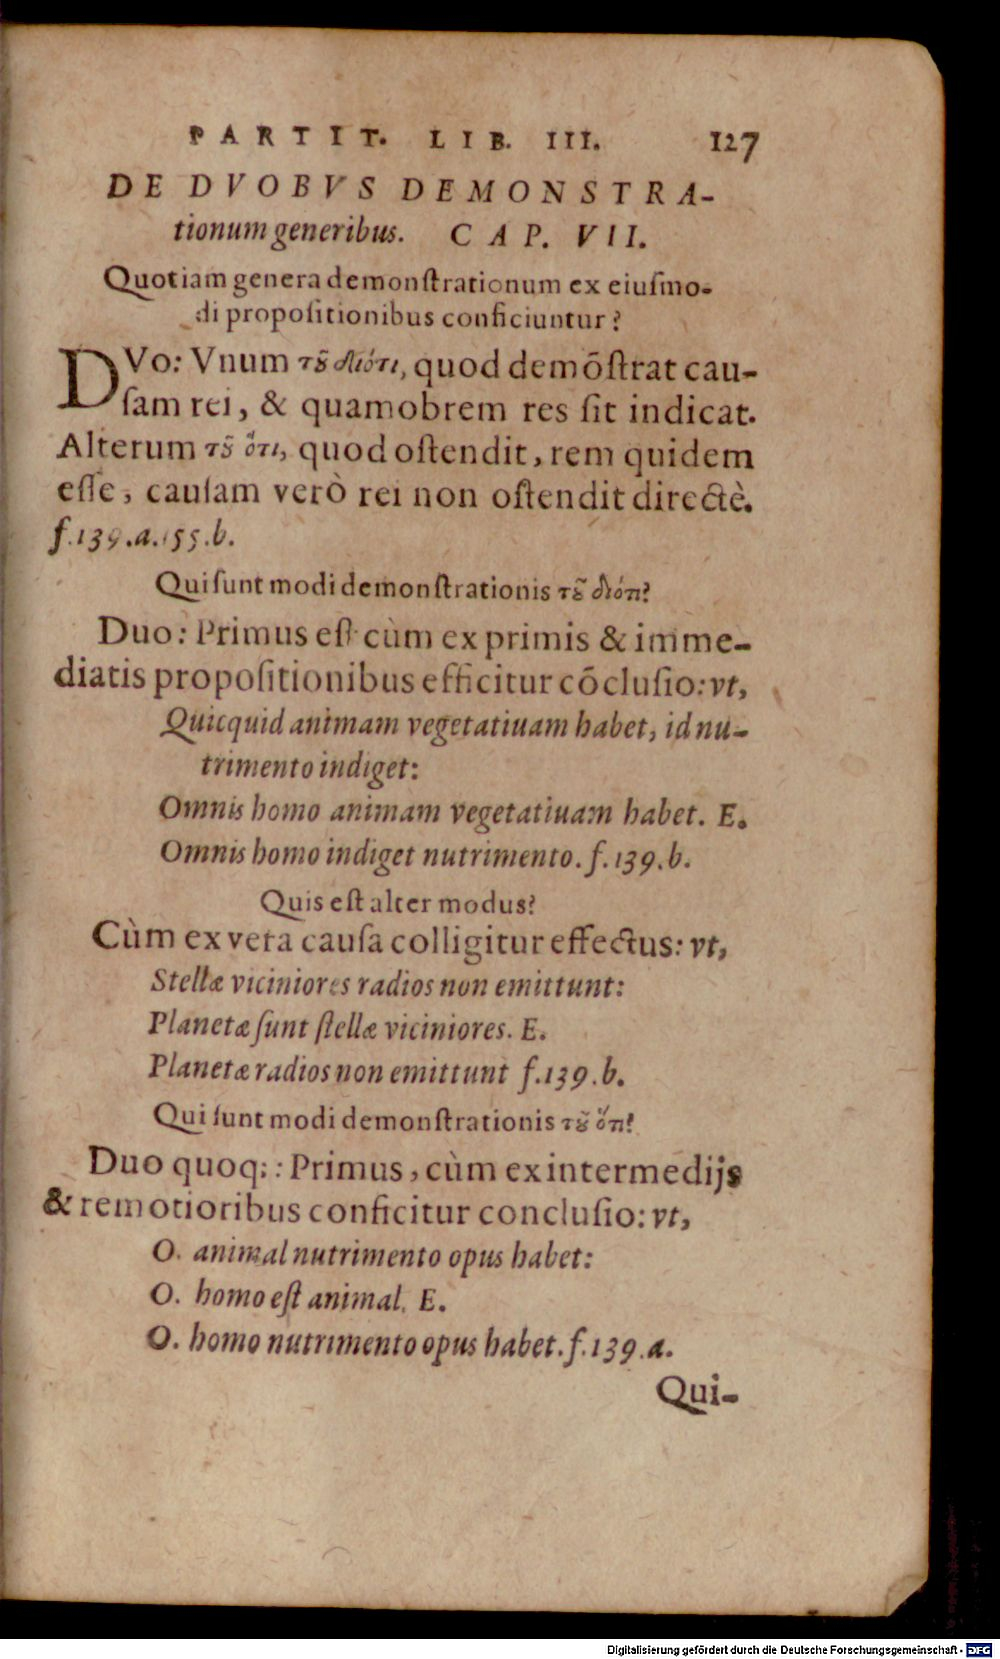 PARTIT. LIB. III. 127
DE DVOBVS DEMONSTRA-
tionum generibus. CAP. VII.
Quotiam genera demonſtrationum ex eiuſmo-
di propoſitionibus conficiuntur?
DVo: Vnum τȣ͂ διότι, quod demõſtrat cau-
ſam rei, & quamobrem res ſit indicat.
Alterum τȣ͂ ὅτι, quod oſtendit, rem quidem
eſſe, cauſam verò rei non oſtendit directè.
f.139.a.155.b.
Qui ſunt modi demonſtrationis τȣ͂ διότι?
Duo: Primus eſt cùm ex primis & imme-
diatis propoſitionibus efficitur cõcluſio: vt,
Quicquid animam vegetatiuam habet, id nu-
trimento indiget:
Omnis homo animam vegetatiuam habet. E.
Omnis homo indiget nutrimento. f.139.b.
Quis eſt alter modus?
Cùm ex vera cauſa colligitur effectus: vt,
Stellæ viciniores radios non emittunt:
Planetæ ſunt ſtellæ viciniores. E.
Planetæ radios non emittunt f.139.b.
Qui ſunt modi demonſtrationis τȣ͂ ὅτι?
Duo quoq;: Primus, cùm ex intermedijs
& remotioribus conficitur concluſio: vt,
O. animal nutrimento opus habet:
O. homo eſt animal. E.
O. homo nutrimento opus habet. f.139.a.
Qui-
Digitalisierung gefördert durch die Deutsche Forschungsgemeinschaft - DFG